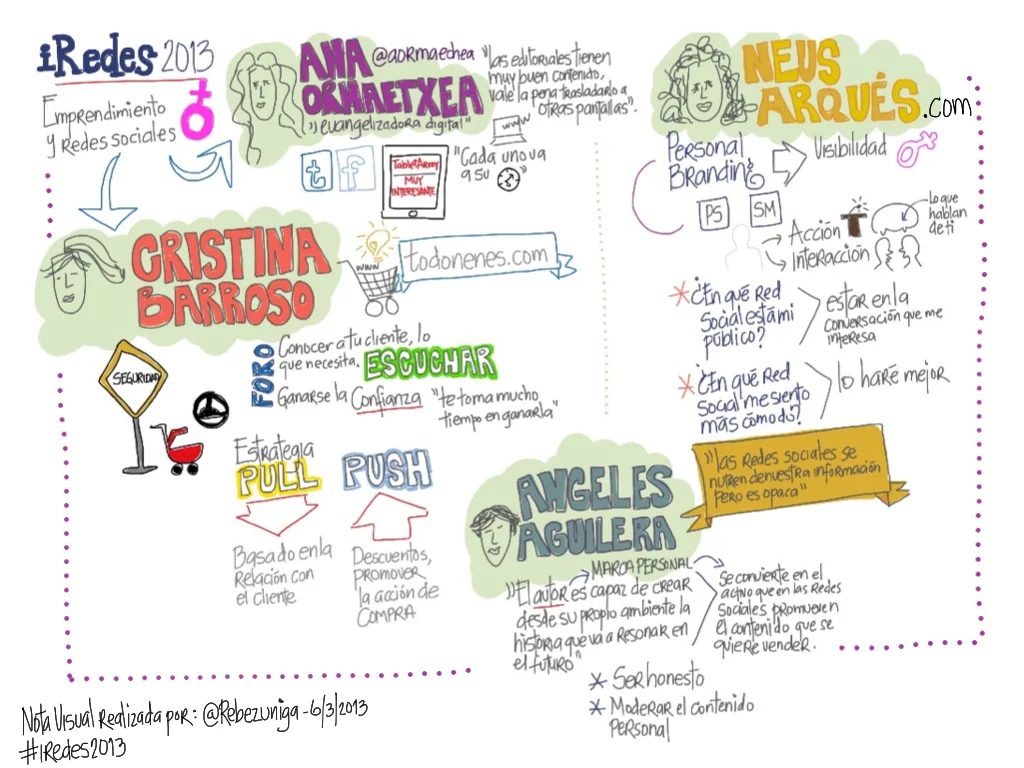 iRedes 2013
Emprendimiento
y Redes sociales
ANA
ORMAETXEA
@aormaechea
"evangelizadora digital"
"las editoriales tienen
muy buen contenido,
vale la pena trasladarlo a
otras pantallas".
www
t f
TabletArmy
MUY
INTERESANTE
"Cada uno va
a su "
NEUS
ARQUÉS.com
Personal
Branding
Visibilidad
PS SM
Acción
Interacción
lo que
hablan
de ti
* ¿En qué Red
Social está mi
público?
estar en la
conversación que me
interesa
* ¿En qué Red
Social me siento
más cómodo?
lo haré mejor
CRISTINA
BARROSO
www
todonenes.com
SEGURIDAD
FORO
Conocer a tu cliente, lo
que necesita. ESCUCHAR
Ganarse la Confianza "te toma mucho
tiempo en ganarla"
Estrategia
PULL
Basado en la
Relación con
el cliente
PUSH
Descuentos,
promover
la acción de
COMPRA
ANGELES
AGUILERA
"las Redes sociales se
nutren de nuestra información
pero es opaca"
MARCA PERSONAL
"El autor es capaz de crear
desde su propio ambiente la
historia que va a resonar en
el futuro"
Se convierte en el
activo que en las Redes
Sociales promueven
el contenido que se
quiere vender.
* Ser honesto
* Moderar el contenido
personal
Nota Visual Realizada por: @Rebezuniga - 6/3/2013
#iRedes2013